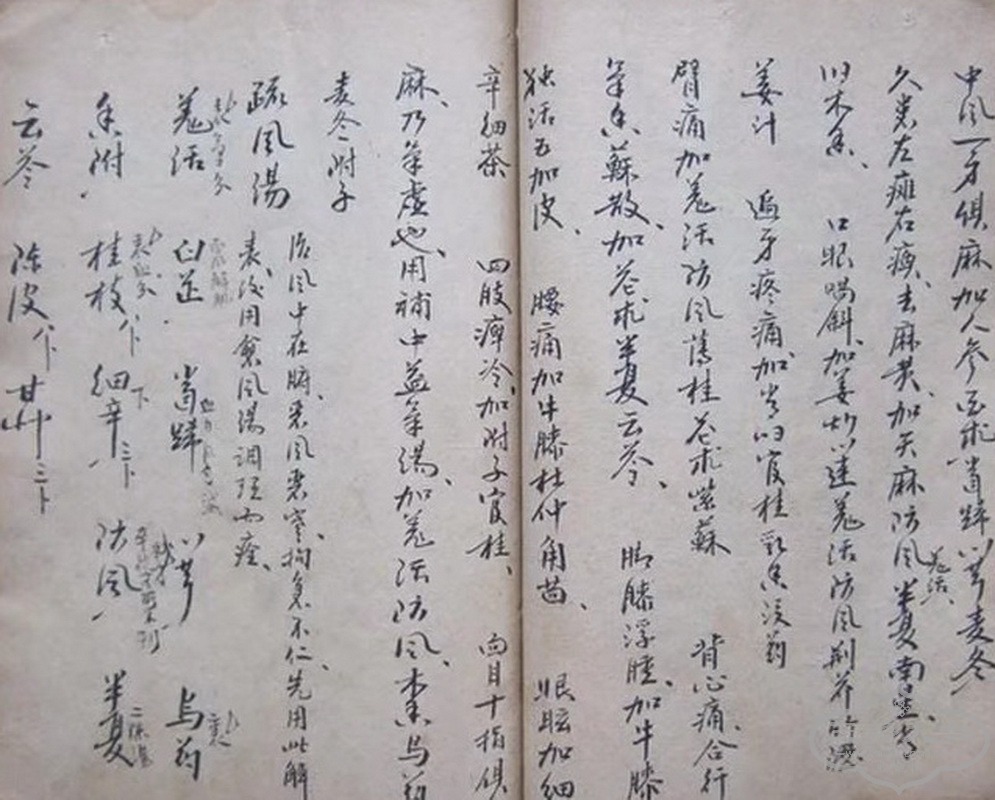 中风一身俱麻加人参白朮当归川芎麦冬
久患左瘫右痪去麻黄加天麻防风羌活半夏南星
木香 口眼喎斜加姜炒黄连羌活防风荆芥竹沥
姜汁 遍身疼痛加当归官桂乳香没药
臂痛加羌活防风薄桂苍朮紫蘇 背心痛合行
氣香蘇散加苍朮半夏云苓 脚膝浮腫加牛膝
独活五加皮 腰痛加牛膝杜仲角茴 眼眩加细
辛细茶 四肢瘅冷加附子官桂 面目十指俱
麻乃氣虚也用補中益氣湯加羌活防风木香乌药
麦冬附子
疏风湯 治风中在腑恶风恶寒拘急不仁先用此解
表後用愈风湯調理而痊
羌活 白芷 当归 川芎 乌药
香附 桂枝 细辛 防风 半夏
云苓 陈皮 甘艸